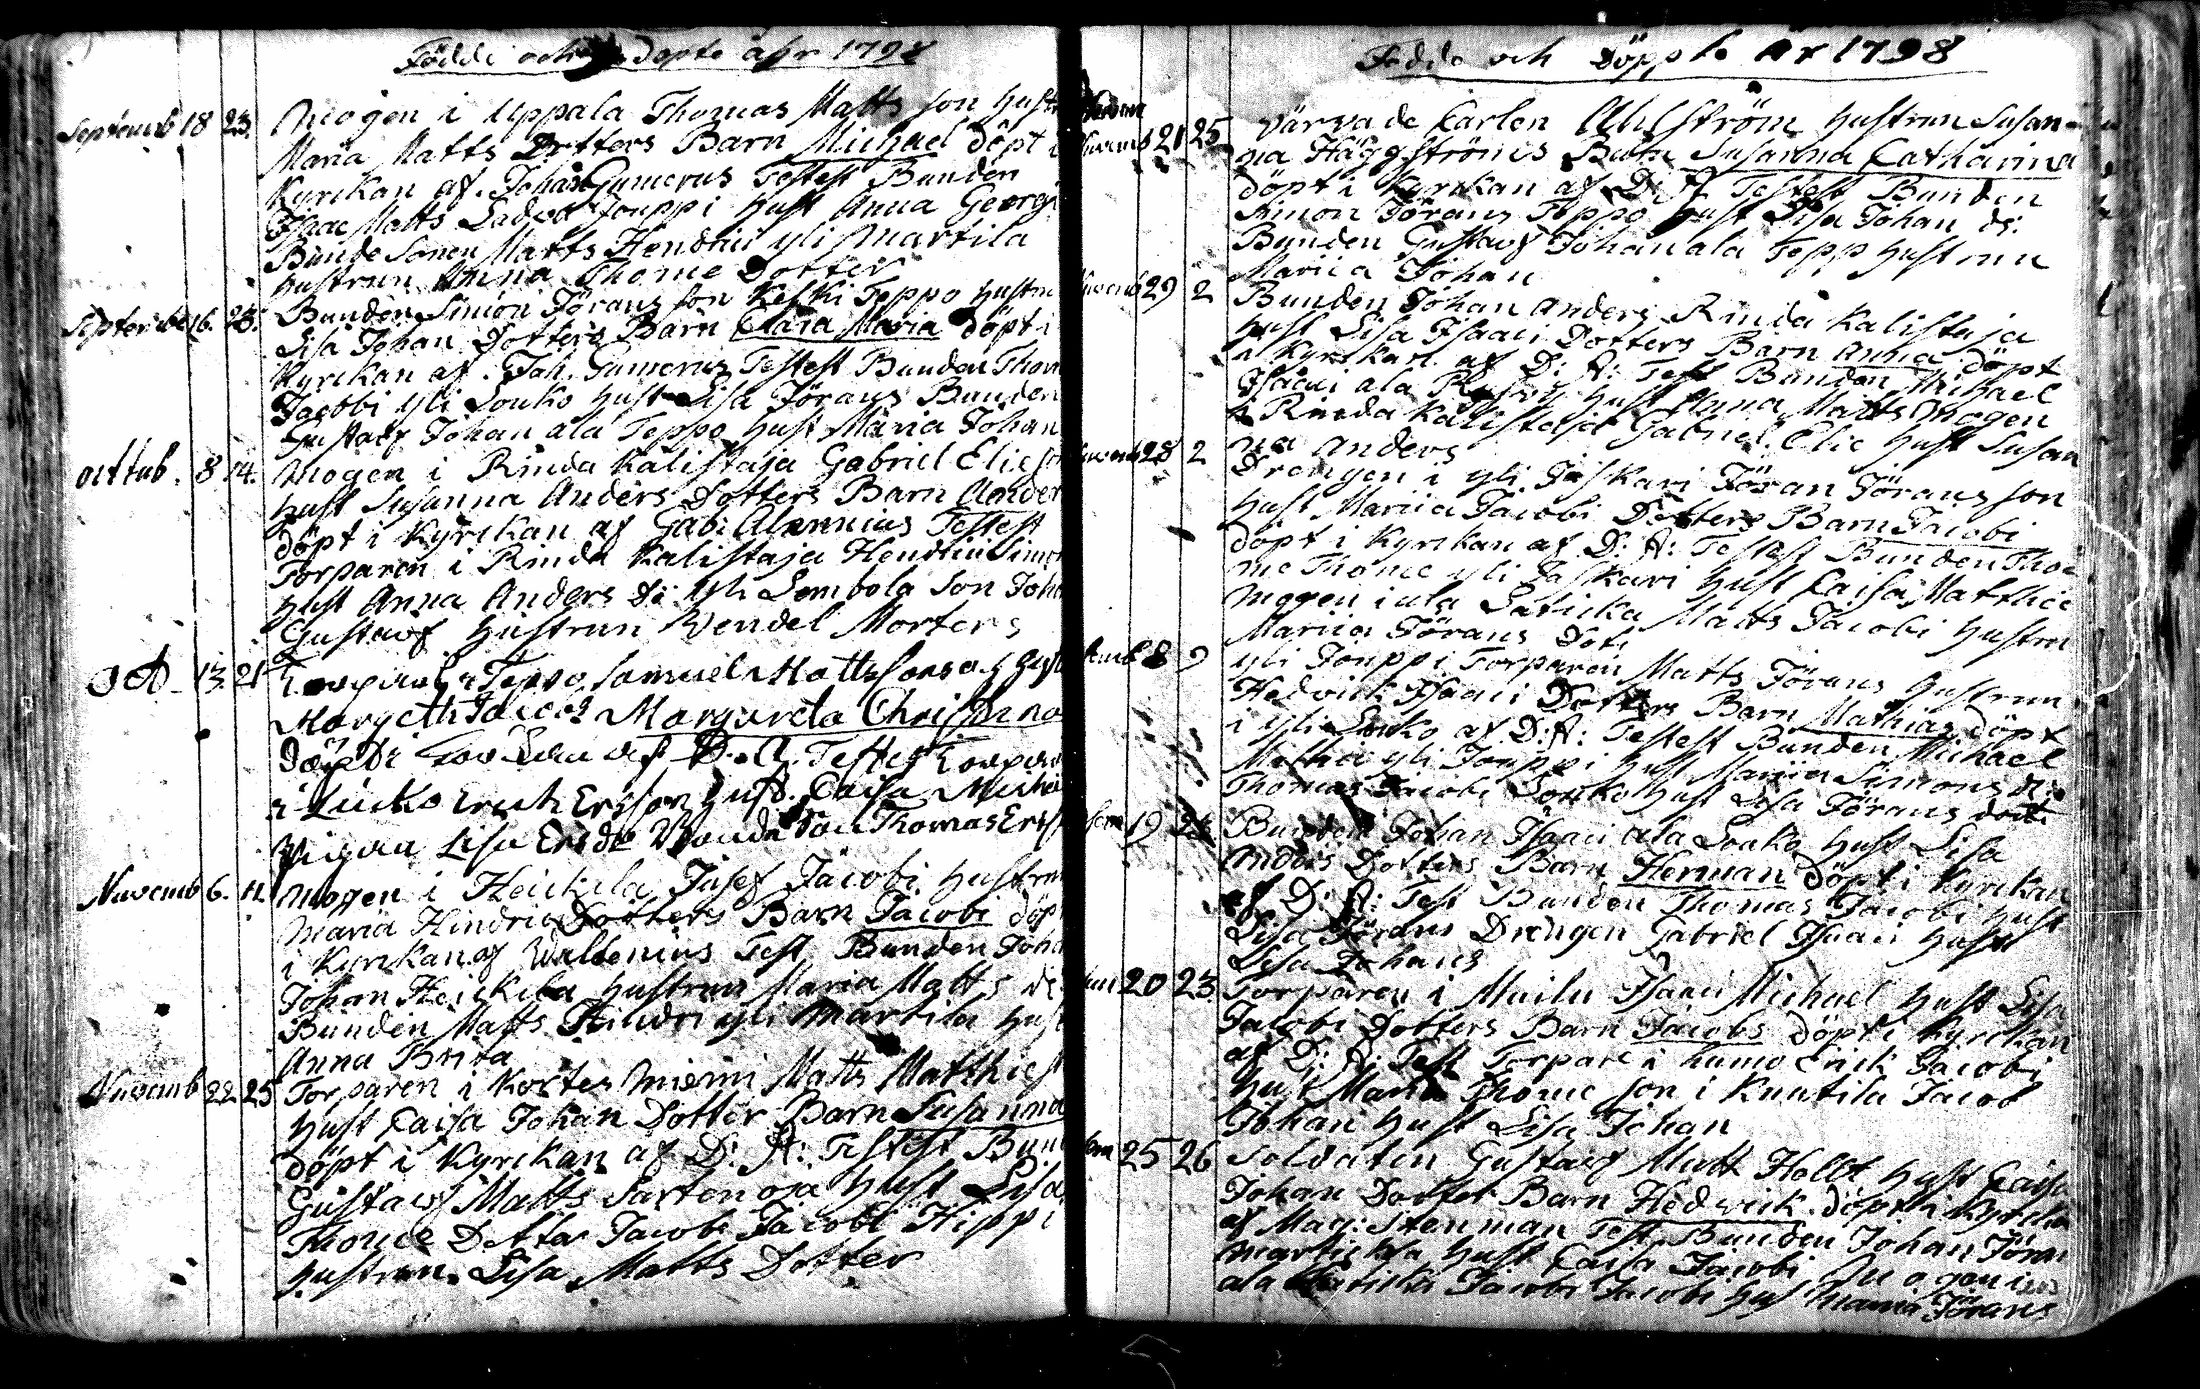 Födde och döpte åhr 1798
Septemb 18 23. Mågen i Uppala Thomas Matts son hustr
Maria Matts Dotters Barn Michael döpt i
Kyrckan af. Johan Gumerus Testest Bunden
Isaac Matts Ladva Jouppi hust Anna Georgi
Bunde Sonen Matts Hendric yli Martila
hustrun Anna Thome Dotter
Septembe 16. 23. Bunden Simon Jörans son Keski Teppo hustru
Lisa Johan Dotters Barn Clara Maria döpt i
Kyrckan af. Joh. Gumerus Testest Bunden Thom
Jacobi yli Louko hust Lisa Jörans Bunden
Gustaf Johan ala Teppo hust Maria Johan
octtub. 8 14. Mogen i Rinda Kalistaja Gabriel Elie son
hust Susanna Anders Dotters Barn Ander
döpt i Kyrckan af Gab: Alcenius Testest
Torparen i Rinda Kalistaja Hendric Simon
hust Anna Anders D: yli Lombola Son Joha
Gustaf hustrun Wendel Morters
Oct. 13. 21 Teppo Samuel Mattsson och hust
Margeth Jacobs Margareta Christina
döpt i af D. A. Testes
i Luoko Erich Ersson hust. Caisa Micha
Pigan Lisa Ersdr Bonda Son Thomas Erss
Nuvemb 6. 11. Mogen i Heickila Jusef Jacobi hustrun
Maria Hindric Dotters Barn Jacobi döpt
i Kyrckan af Waldenius Test Bunden Joha
Johan Heickila hustrun Maria Matts d:
Bunden Matts Hindri yli Martila hust
Anna Brita
Nuvemb 22 25 Torparen i Kortesniemi Matts Matthie
hust Caisa Johan Dotter Barn Susanna
döpt i Kyrckan af D: A: Testest Bund
Gustaf Matts Sartenoja hust Lisa
Thome Dotter Jacob Jacobi Hippi
hustrun Lisa Matts Dotter
Födde och Döppte År 1798
21 25 Värvade Carlen Ahlström hustrun Susan-
na Häggströms Barn Susanna Catharina
döpt i Kyrckan af D: A: Testest Bunden
Simon Jörans Teppo hust Lisa Johan d:
Bunden Gustaf Johan ala Tepp hustrun
Mariia Johan
29 2 Bunden Johan Anders Rinda Kalistaja
hust Lisa Isaaci Dotters Barn Anna döpt
i Kyrckan af D: A: Test Bunden Michael
Isaaci ala hust Anna Matts Mogen
i Rinda Kalistaja Gabriel Elie hust Susan
na Anders
28 2 Drengen i yli Jaskari Jöran Jörans son
hust Mariia Jacobi Dotters Barn Jacobi
döpt i Kyrckan af D: A: Testest Bunden Tho
me Thome yli Jaskari hust Caisa Matthie
Mogen i ala Saricka Matts Jacobi hustru
Mariia Jörans Dot:
8 9 yli Jouppi Torparen Matts Jörans hustrun
Hedvick Isaaci Dotters Barn Mathias döpt
i yli Louko af D: A: Testest Bunden Michael
Mathie yli Jouppi hust Mariia Simons d:
Thomas Jacobi Louko hust Lisa Jörans dott
19 23 Bunden Johan Isaaci ala Louko hust Lisa
Anders Dotters Barn Herman döpt i Kyrckan
af D: A: Test Bunden Thomas Jacobi hust
Lisa Jörans Drengen Gabriel Isaaci hust
Lisa Johans
20 23. Torparen i Isaaci Michael hust Lisa
Jacobi Dotters Barn Jacobs döpt i Kyrckan
af D: A: Test Torpare i Kumo Erick Jacobi
hust Maria Thome son i Knutila Jacob
Johan hust Lisa Johan
25 26 Soldaten Gustaf Matt Hollt hust Caisa
Johan Dotter Barn Hedvick döpt i Kyrckan
af Mag: Stenman Test Bunden Johan Jöran
hust Caisa Jacobi Mogen i
ala Saricka Jacobi Jacobi hust Maria Jörans